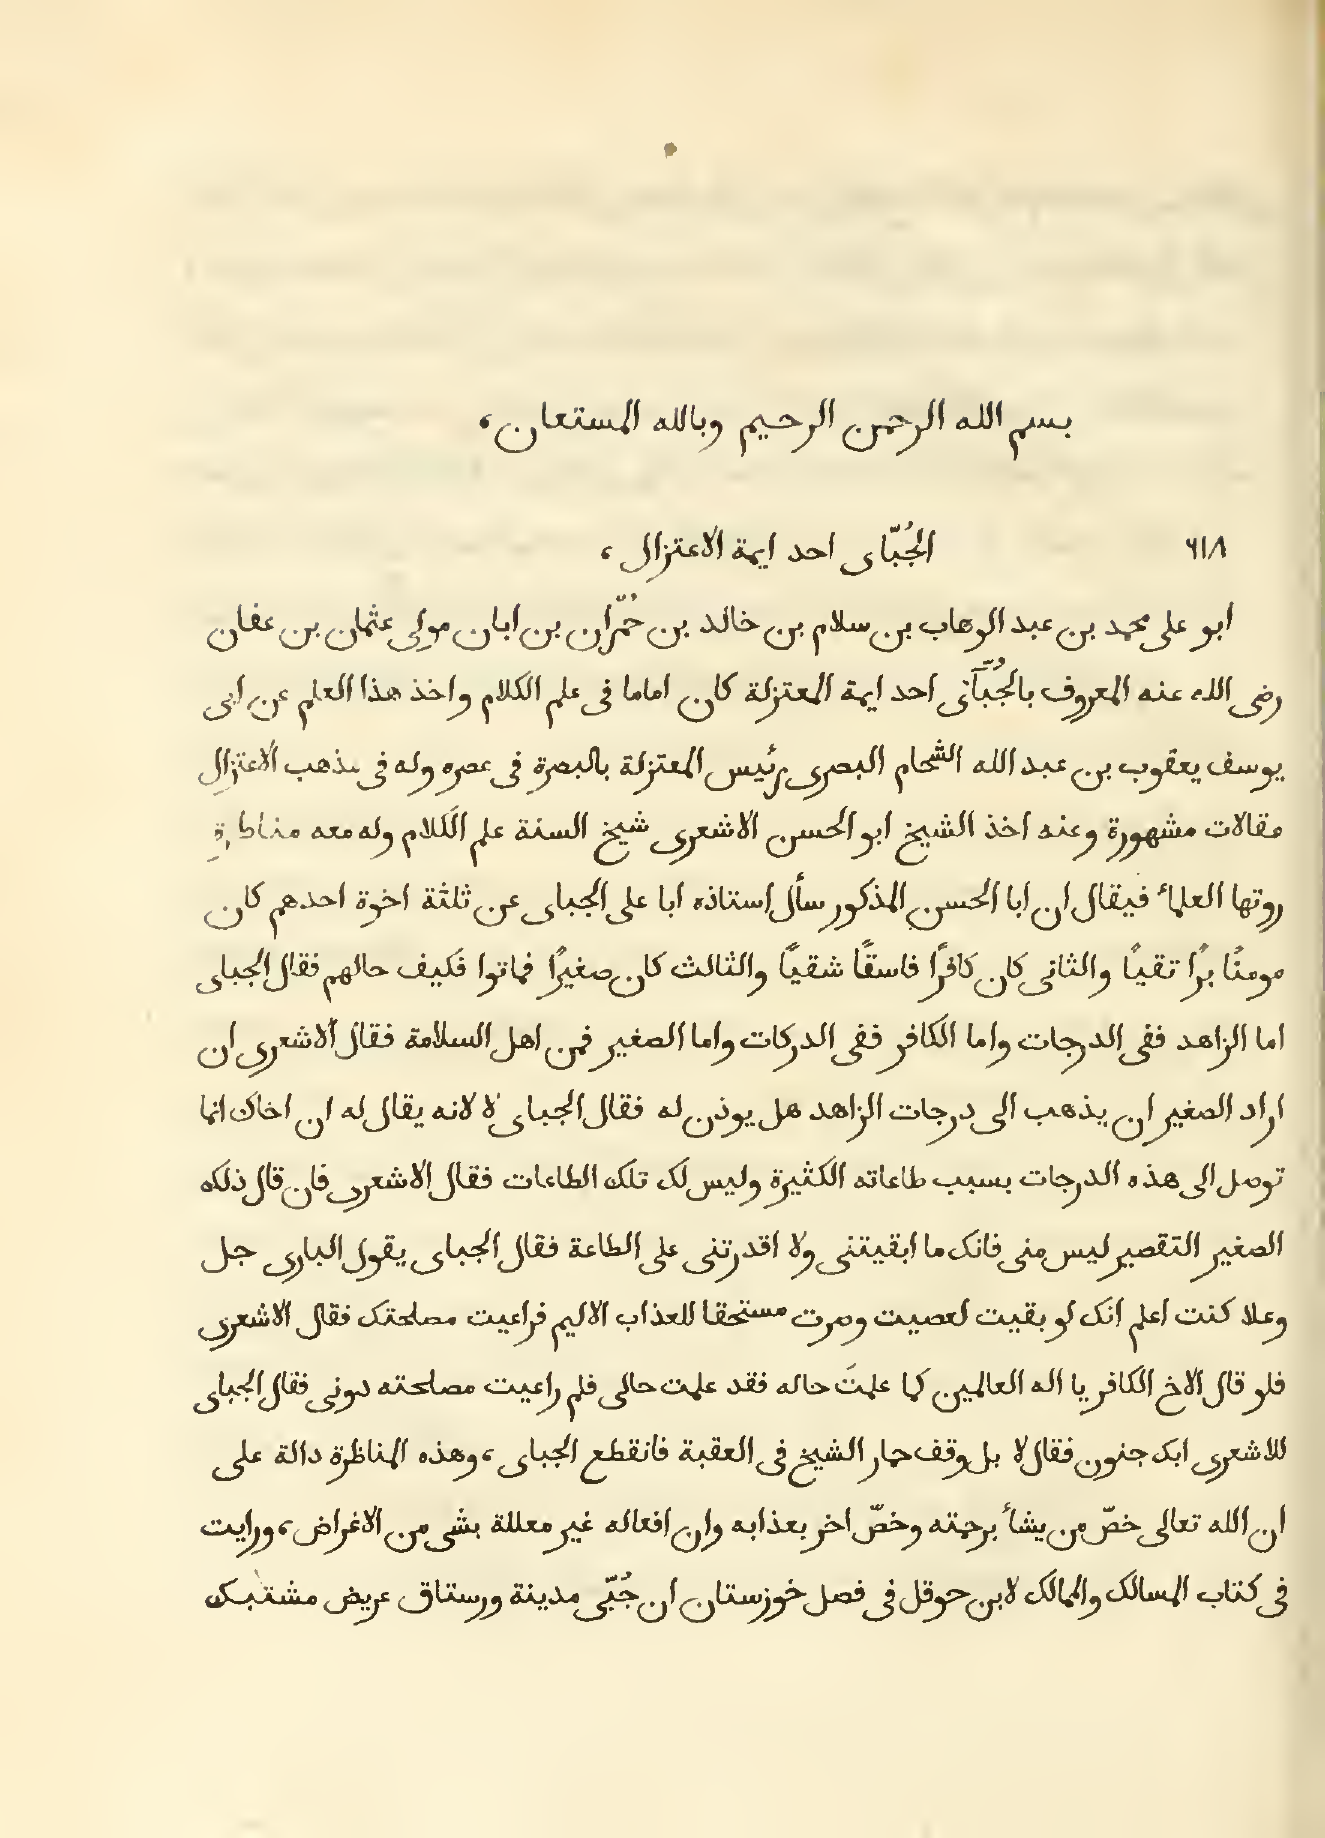 بسم الله الرحمن الرحيم وبالله المستعان،
٦١٨ الجُبّاى احد ايمة الاعتزال،
ابو على محمد بن عبد الوهاب بن سلام بن خالد بن حُمّران بن ابان مولى عثمان بن عفان
رضى الله عنه المعروف بالجُبّآئى احد ايمة المعتزلة كان اماما فى علم الكلام واخذ هذا العلم عن ابى
يوسف يعقوب بن عبد الله الشحام البصرى رئيس المعتزلة بالبصرة فى عصره وله فى مذهب الاعتزال
مقالات مشهورة وعنه اخذ الشيخ ابو الحسن الاشعرى شيخ السنة علم الكلام وله معه مناظرة
روتها العلمأ فيقال ان ابا الحسن المذكور سأل استاذه ابا على الجباى عن ثلثة اخوة احدهم كان
مومنًا برًا تقيًا والثانى كان كافرًا فاسقًا شقيًا والثالث كان صغيرًا فماتوا فكيف حالهم فقال الجباى
اما الزاهد ففى الدرجات واما الكافر ففى الدركات واما الصغير فمن اهل السلامة فقال الاشعرى ان
اراد الصغير ان يذهب الى درجات الزاهد هل يوذن له فقال الجباى لا لانه يقال له ان اخاك انما
توصل الى هذه الدرجات بسبب طاعاته الكثيرة وليس لك تلك الطاعات فقال الاشعرى فان قال ذلك
الصغير التقصير ليس منى فانك ما ابقيتنى ولا اقدرتنى على الطاعة فقال الجباى يقول البارى جل
وعلا كنت اعلم انك لو بقيت لعصيت وصرت مستحقا للعذاب الاليم فراعيت مصلحتك فقال الاشعرى
فلو قال الاخ الكافر يا اله العالمين كما علمتَ حاله فقد علمت حالى فلم راعيت مصلحته دونى فقال الجباى
للاشعرى ابك جنون فقال لا بل وقف حمار الشيخ فى العقبة فانقطع الجباى، وهذه المناظرة دالة على
ان الله تعالى خصّ من يشأ برحمته وخصّ اخر بعذابه وان افعاله غير معللة بشى من الاغراض، ورايت
فى كتاب المسالك والممالك لابن حوقل فى فصل خوزستان ان جُبّى مدينة ورستاق عريض مشتبك